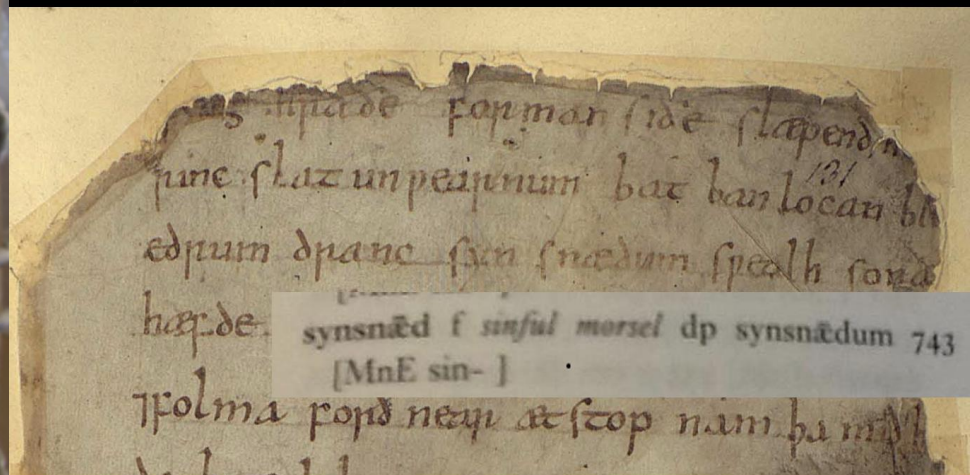 hraðe forman siðe slæpend
131
rinc slat unƿearnum bat ban locan bl
edrum dranc syn snædum sƿealh sona
hæfde
synsnǣd f sinful morsel dp synsnǣdum 743
[MnE sin- ]
⁊folma forð near ætstop nam þa